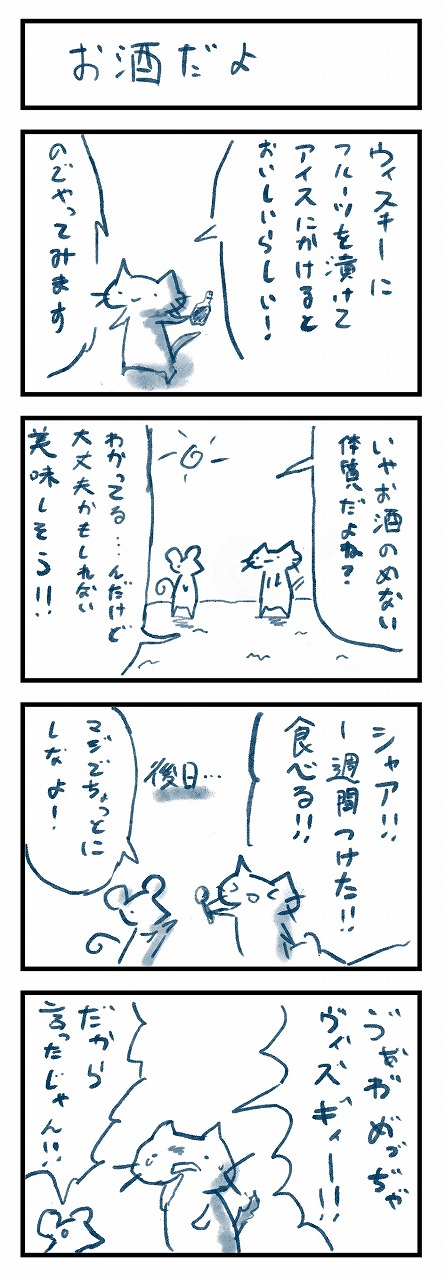 お酒だよ
ウィスキーに
フルーツを漬けて
アイスにかけると
おいしいらしい!
のでやってみます
いやお酒のめない
体質だよね?
わかってる…んだけど
大丈夫かもしれない
美味しそう!!
シャア!!
1週間つけた!!
食べる!!
後日…
マジでちょっとに
しなよ!
ゔぁわめっぢゃ
ヴィズギィー!!
だから
言ったじゃん!!